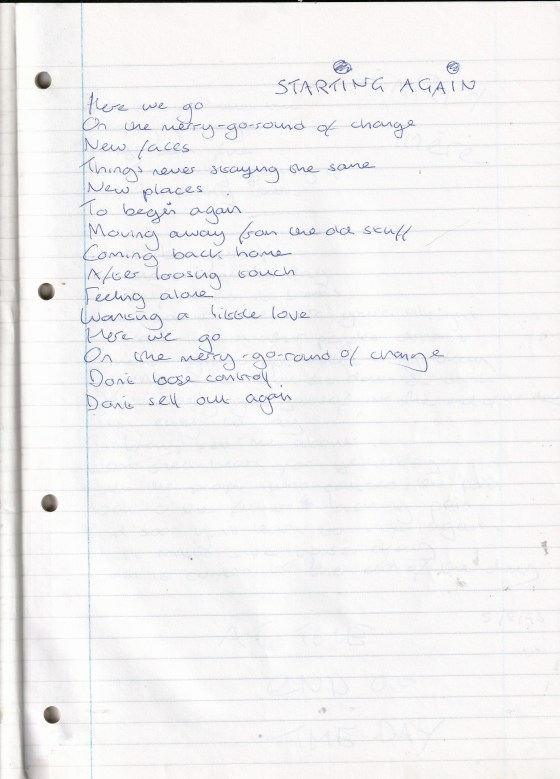 STARTING AGAIN
Here we go
On the merry-go-round of change
New faces
Things never staying the same
New places
To begin again
Moving away from the old stuff
Coming back home
After loosing touch
Feeling alone
Wanting a little love
Here we go
On the merry-go-round of change
Don't loose control
Don't sell out again